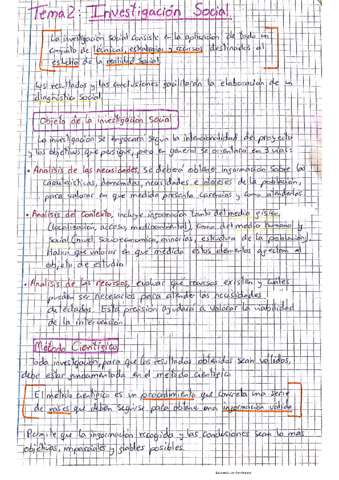 Tema 2: Investigación Social
La investigación social consiste en la aplicación de todo un
conjunto de técnicas, estrategias y recursos destinados al
estudio de la realidad social
Los resultados y las conclusiones facilitarán la elaboración de un
diagnóstico social.
Objeto de la investigación Social
La investigación se enfocará según la intencionalidad del proyecto
y los objetivos que persigue, pero en general se orientará en 3 vías:
• Análisis de las necesidades, se deberá obtener información sobre las
características, demandas, necesidades e intereses de la población,
para valorar en qué medida presenta carencias y cómo atenderlas.
• Análisis del Contexto, incluye información tanto del medio físico
(localización, acceso, medioambiental), como del medio humano y
social (nivel socioeconómico, minorías, estructura de la población).
Habrá que valorar en qué medida estos elementos afectan al
objeto de estudio.
• Análisis de los recursos, evaluar qué recursos existen y cuáles
pueden ser necesarios para atender las necesidades
detectadas. Esta previsión ayudará a valorar la viabilidad
de la intervención.
Método Científico
Toda investigación, para que los resultados obtenidos sean válidos,
debe estar fundamentada en el método científico
El método científico es un procedimiento que concreta una serie
de fases que deben seguirse para obtener una información válida
Permite que la información recogida y las conclusiones sean lo más
objetivas, imparciales y fiables posibles.